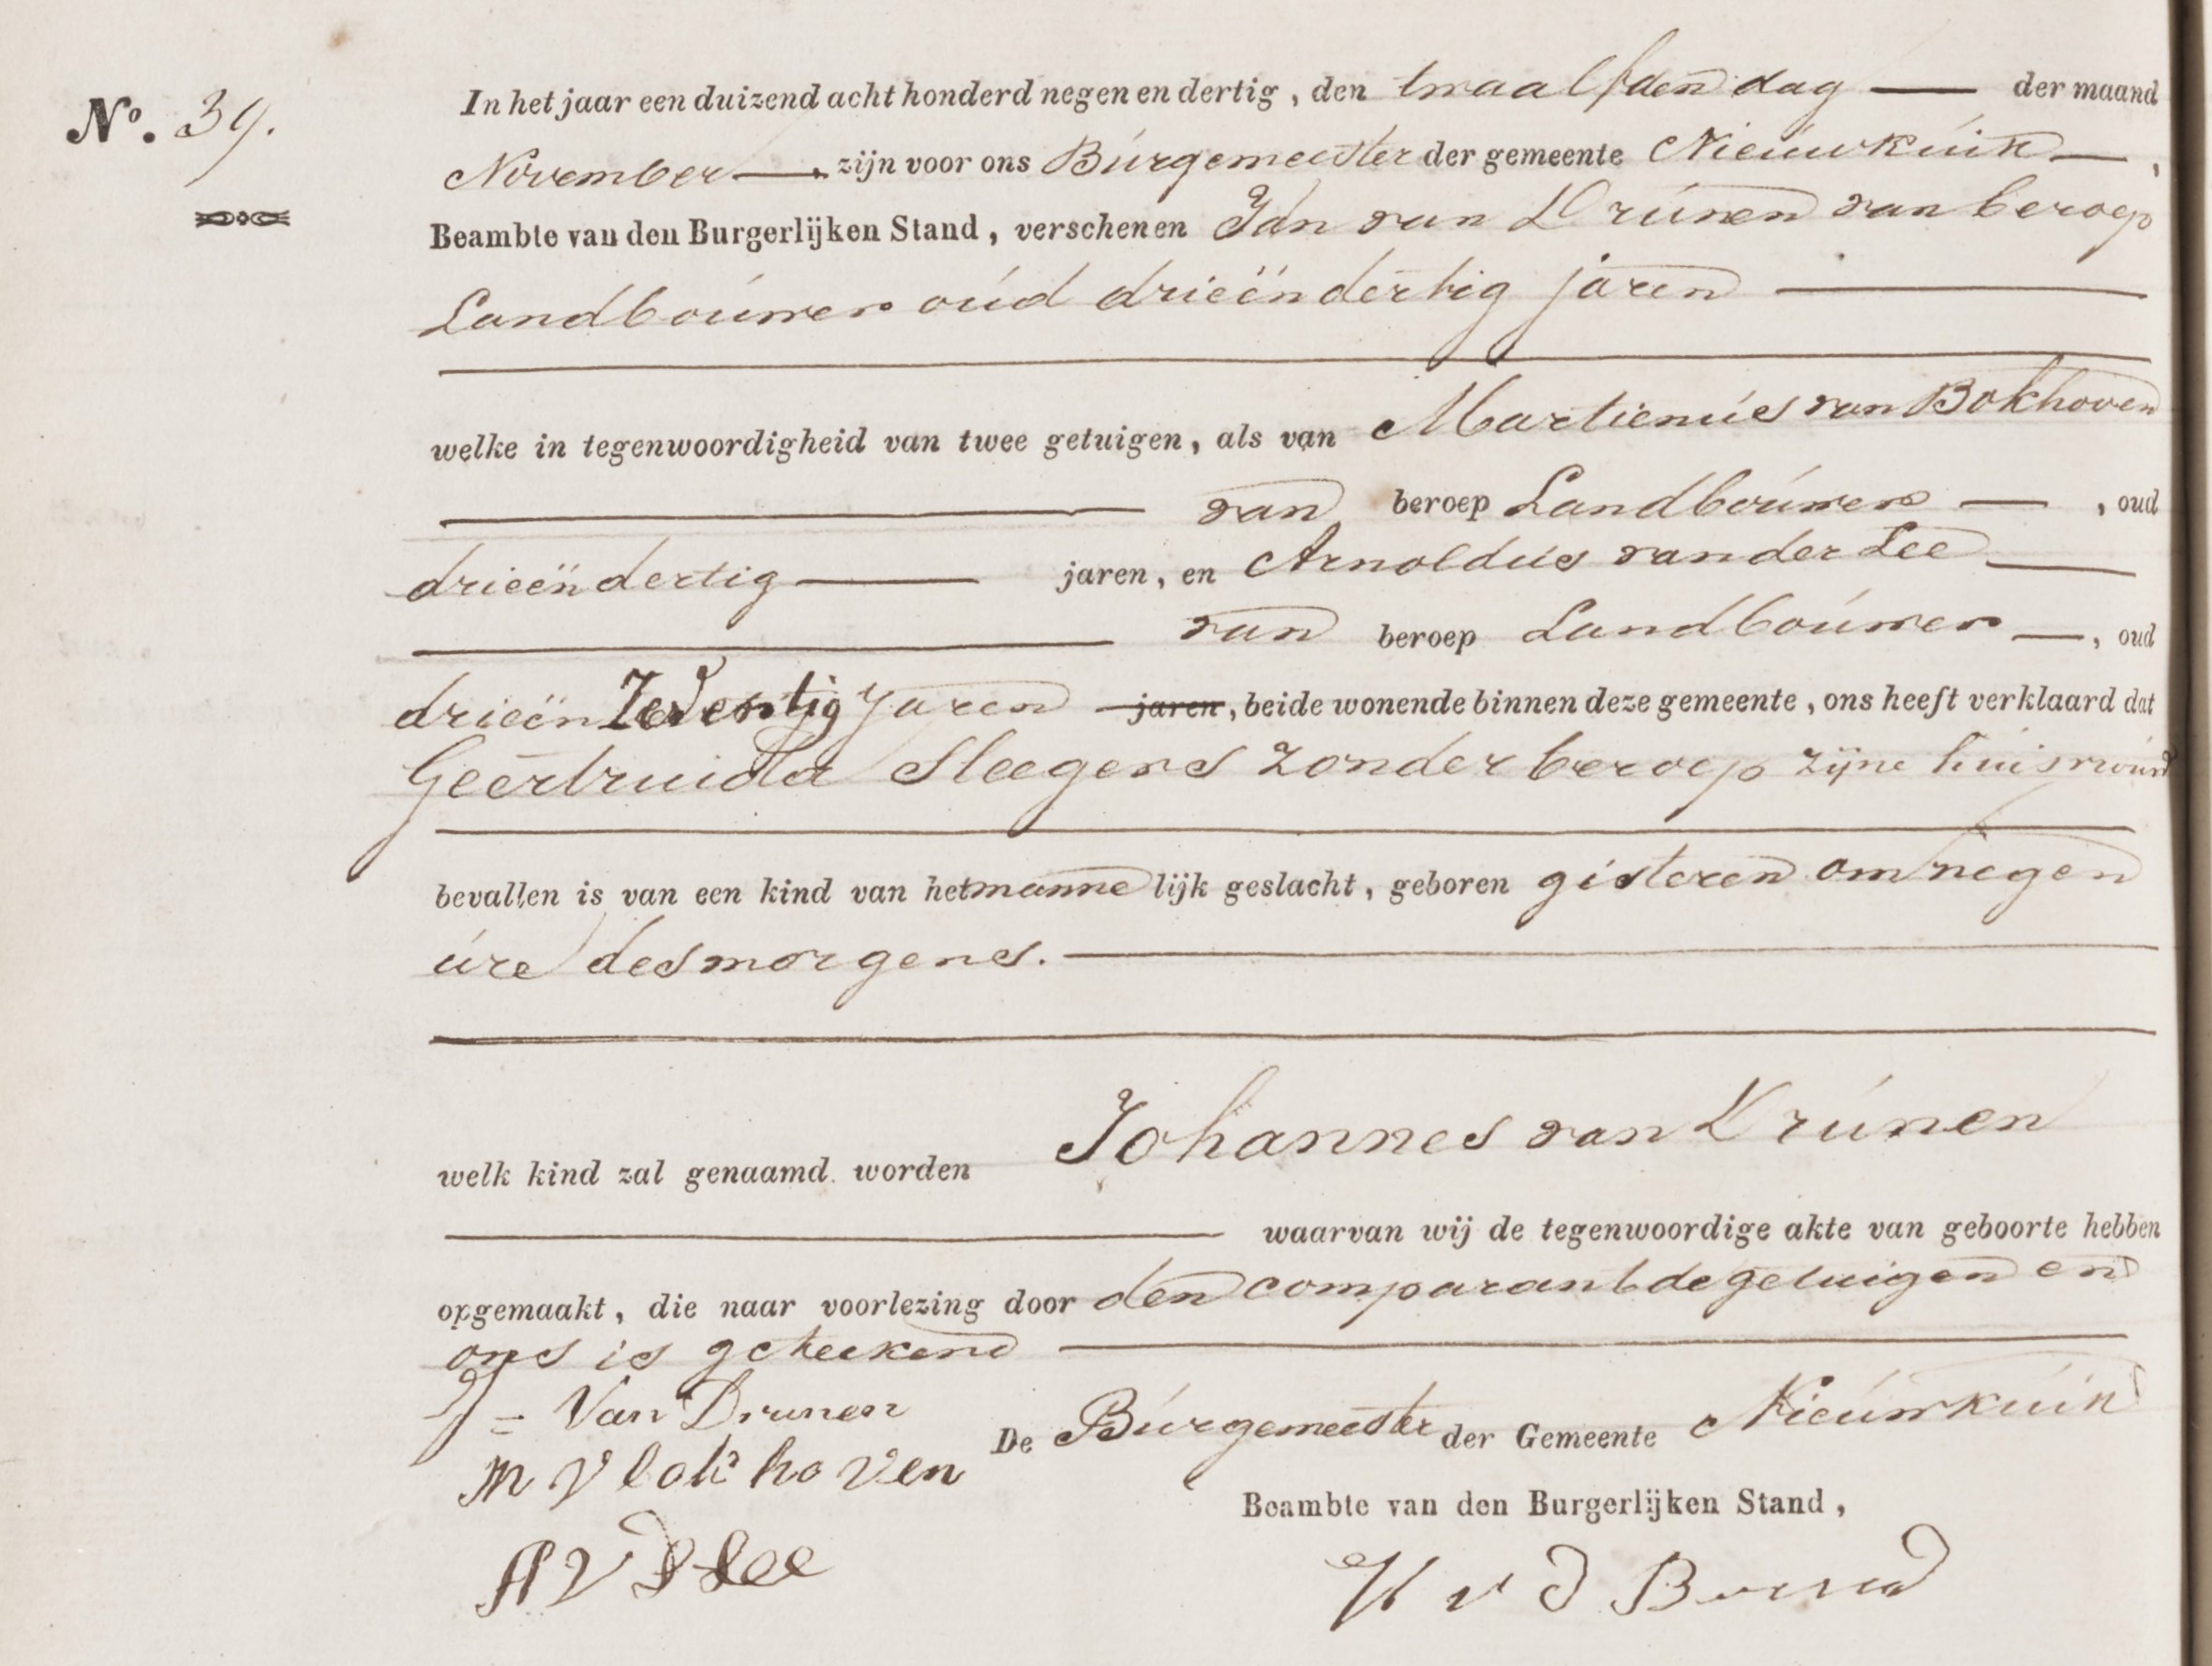 No. 39.
In het jaar een duizend acht honderd negen en dertig, den twaalfden dag der maand
November, zijn voor ons Burgemeester der gemeente Nieuwkuik,
Beambte van den Burgerlijken Stand, verschenen Jan van Drúnen van beroep
Landboúwer oúd drieëndertig jaren
welke in tegenwoordigheid van twee getuigen, als van Martienús van Bokhoven
van beroep Landboúwer, oud
drieëndertig jaren, en Arnoldus van der Lee
van beroep Landboúwer, oud
drieënzeventig jaren jaren, beide wonende binnen deze gemeente, ons heeft verklaard dat
Geertruida Sleegers zonder beroep zijne huisvrouw
bevallen is van een kind van het mannelijk geslacht, geboren gisteren om negen
úre des morgens.
welk kind zal genaamd worden Johannes van Drúnen
waarvan wij de tegenwoordige akte van geboorte hebben
opgemaakt, die naar voorlezing door den comparant de getuigen en
ons is geteekend
J = Van Drunen
De Búrgemeester der Gemeente Nieúwkúik
M V bokhoven
Beambte van den Burgerlijken Stand,
A V D Lee
v d